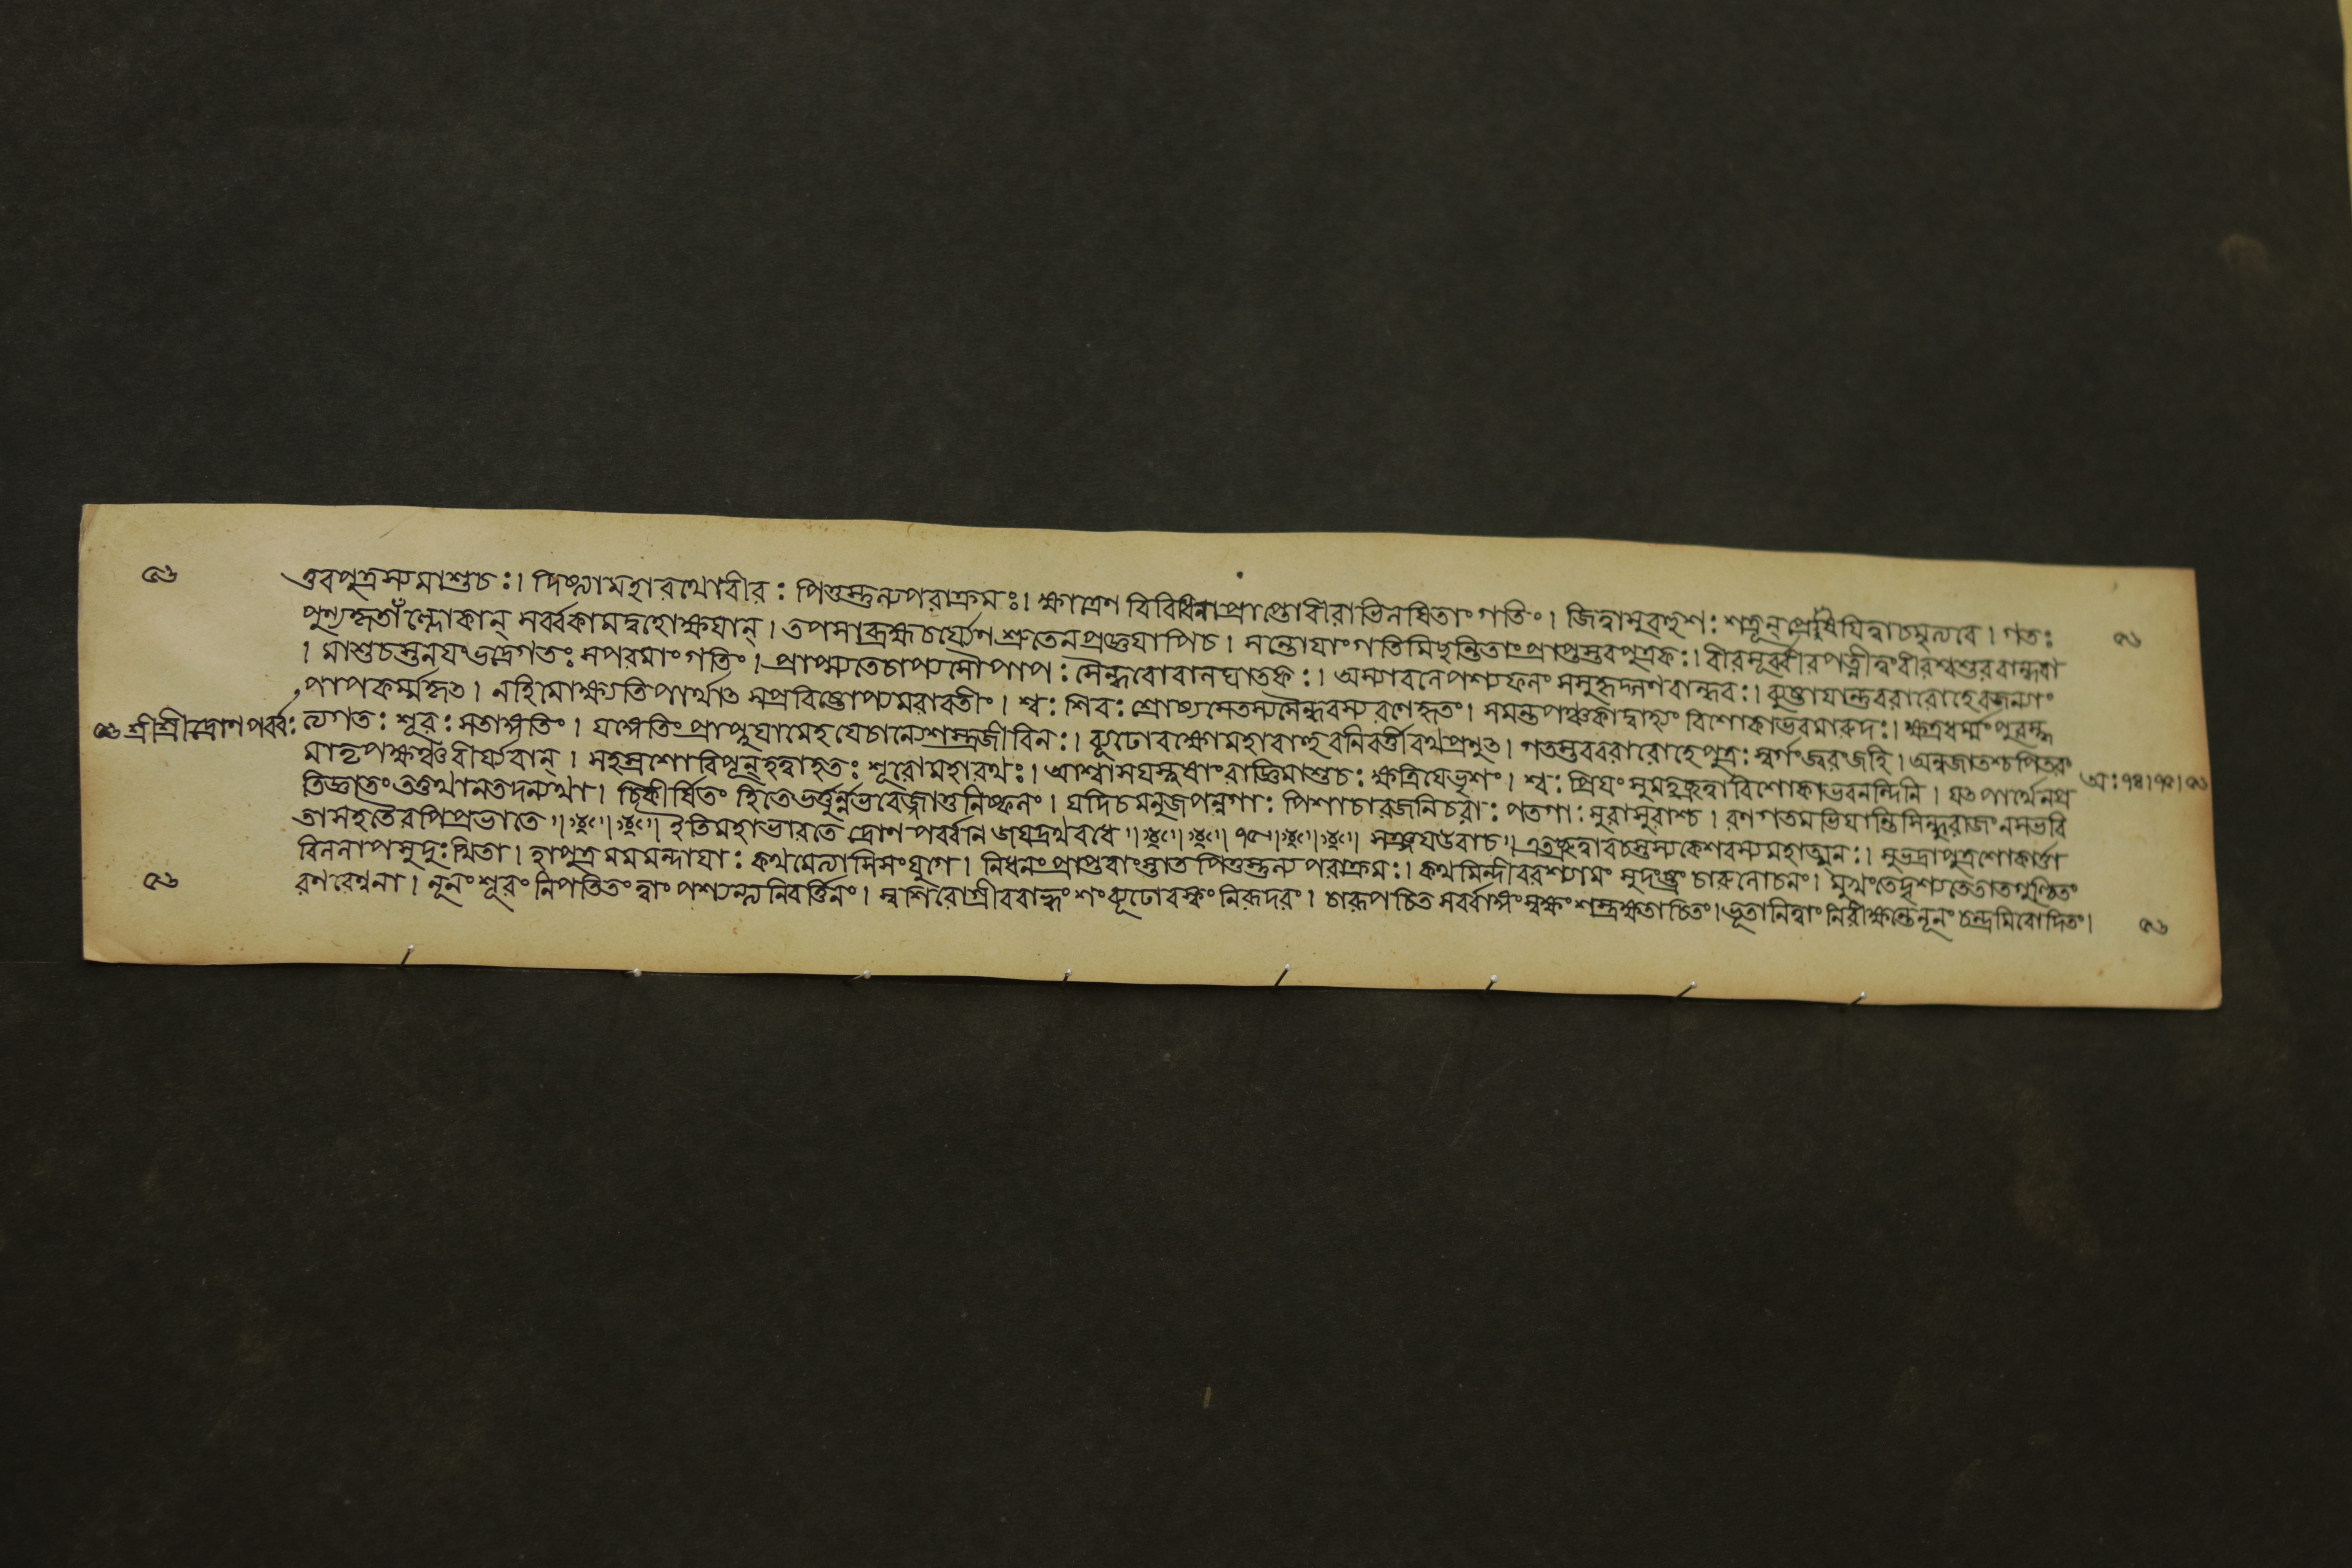 ৫৬ তবপুত্রস্যমাশুচঃ। দিষ্ট্যামহারথোবীরঃ পিতুস্তুল্যপরাক্রমঃ। ক্ষাত্রেণ বিবিধিনাপ্রাপ্তোবীরাভিলষিতাং গতিং। জিত্বাসুবহুশঃ শত্রূন্ প্রেষয়িত্বাচমৃত্যবে। গতঃ ৫৬
পুণ্যকৃতাঁল্লোকান্ সর্ব্বকামদুহোক্ষয়ান্। তপসাব্রহ্মচর্য্যেণ শ্রুতেনপ্রজ্ঞয়াপিচ। সন্তোযাংগতিমিছন্তিতাংপ্রাপ্তস্তবপুত্রকঃ। বীরসূর্ব্বীরপত্নীত্বংবীরশ্বশুরবান্ধবা
। মাশুচস্তনয়ংভদ্রেগতঃ সপরমাংগতিং। প্রাপ্স্যতেচাপ্যসৌপাপঃ সৈন্ধবোবালঘাতকঃ। অস্যাবলেপস্যফলং সসুহৃদ্গণবান্ধবঃ। ব্যুষ্টায়ান্তুবরারোহেরজন্যাং
পাপকর্ম্মকৃত। নহিমোক্ষ্যতিপার্থাত সপ্রবিষ্টোপ্যমরাবতীং। শ্বঃ শিরঃ শ্রোষ্যসেতস্যসৈন্ধবস্য রণেহৃতং। সমন্তপঞ্চকাদ্বাহ্যং বিশোকাভবমারুদঃ। ক্ষত্রধর্ম্মংপুরস্কৃ
৫৬ শ্রীশ্রীদ্রোণপর্ব্বঃ ত্যগতঃ শূরঃ সতাঙ্গতিং। যাঙ্গতিংপ্রাপ্নুয়ামেহ যেচান্যেশস্ত্রজীবিনঃ। ব্যূঢোবক্ষোমহাবাহুরনিবর্ত্তীরথপ্রণুত। গতস্তববরারোহেপুত্রঃ স্বর্গংজ্বরংজহি। অনুজাতশ্চপিতরং
মাতৃপক্ষঞ্চবীর্য্যবান্। সহস্রশোরিপূন্ হত্বাহতঃ শূরোমহারথঃ। আশ্বাসয়স্নুষাংরাজ্ঞিমাশুচঃ ক্ষত্রিয়েভৃশং। শ্বঃ প্রিয়ং সুমহচ্ছ্রুত্বাবিশোকাভবনন্দিনি। যতপার্থেনপ্র অঃ ৭৪।৭৫।৫৬
তিজ্ঞাতংতত্তথানতদন্যথা। চিকীর্ষিতং হিতেভর্ত্তুর্ন্নভবেজ্জাতুনিষ্ফলং। যদিচমনুজপন্নগাঃ পিশাচারজনিচরাঃ পতগাঃ সুরাসুরাশ্চ। রণগতমভিয়ান্তিসিন্ধুরাজংনসভবি
তাসহতৈরপিপ্রভাতে॥ ইতিমহাভারতে দ্রোণপর্ব্বনি জয়দ্রথবধে॥ ৭৫॥ সঞ্জয়উবাচ॥ এতচ্ছ্রুত্বাবচস্তস্যকেশবস্যমহাত্মনঃ। সুভদ্রাপুত্রশোকার্ত্তা
বিললাপসুদুঃখিতা। হাপুত্র মমমন্দায়াঃ কথমেত্যাসিসংযুগে। নিধনংপ্রাপ্তবাংস্তাত পিতুস্তুল্যপরাক্রমঃ। কথমিন্দীবরশ্যামং সুদংষ্ট্রং চারুলোচনং। মুখংতেদৃশ্যতেতাতগুণ্ঠিতং
৫৬ রণরেণুনা। নূনং শূরং নিপতিতং ত্বাং পশ্যন্ত্যনিবর্ত্তিনং। স্বশিরোগ্রীববাহ্বংশংব্যূঢোরস্কং নিরূদরং। চারূপচিত সর্ব্বাঙ্গংস্বক্ষং শস্ত্রক্ষতাচিতং। ভূতানিত্বাং নিরীক্ষন্তেনূনং চন্দ্রমিবোদিতং। ৫৬